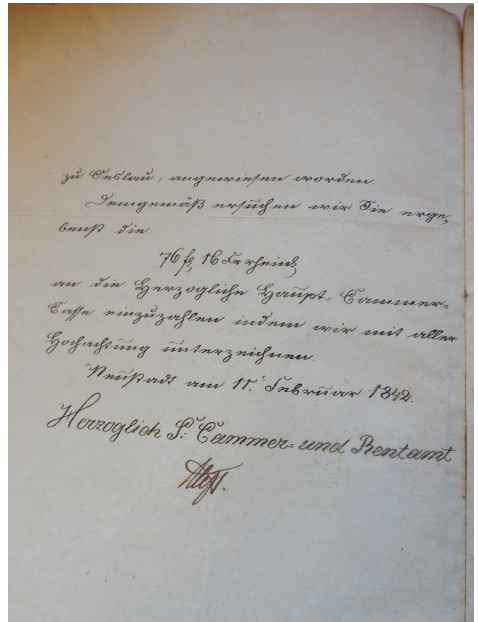 zu Oeslau, angewiesen worden.
Demgemäß ersuchen wir Sie erge-
benst die
76 f 16 Xr rheinl
an die Herzogliche Haupt-Cammer-
Casse einzuzahlen indem wir mit aller
Hochachtung unterzeichnen.
Neustadt am 11. Februar 1842.
Herzoglich S: Cammer- und Rentamt